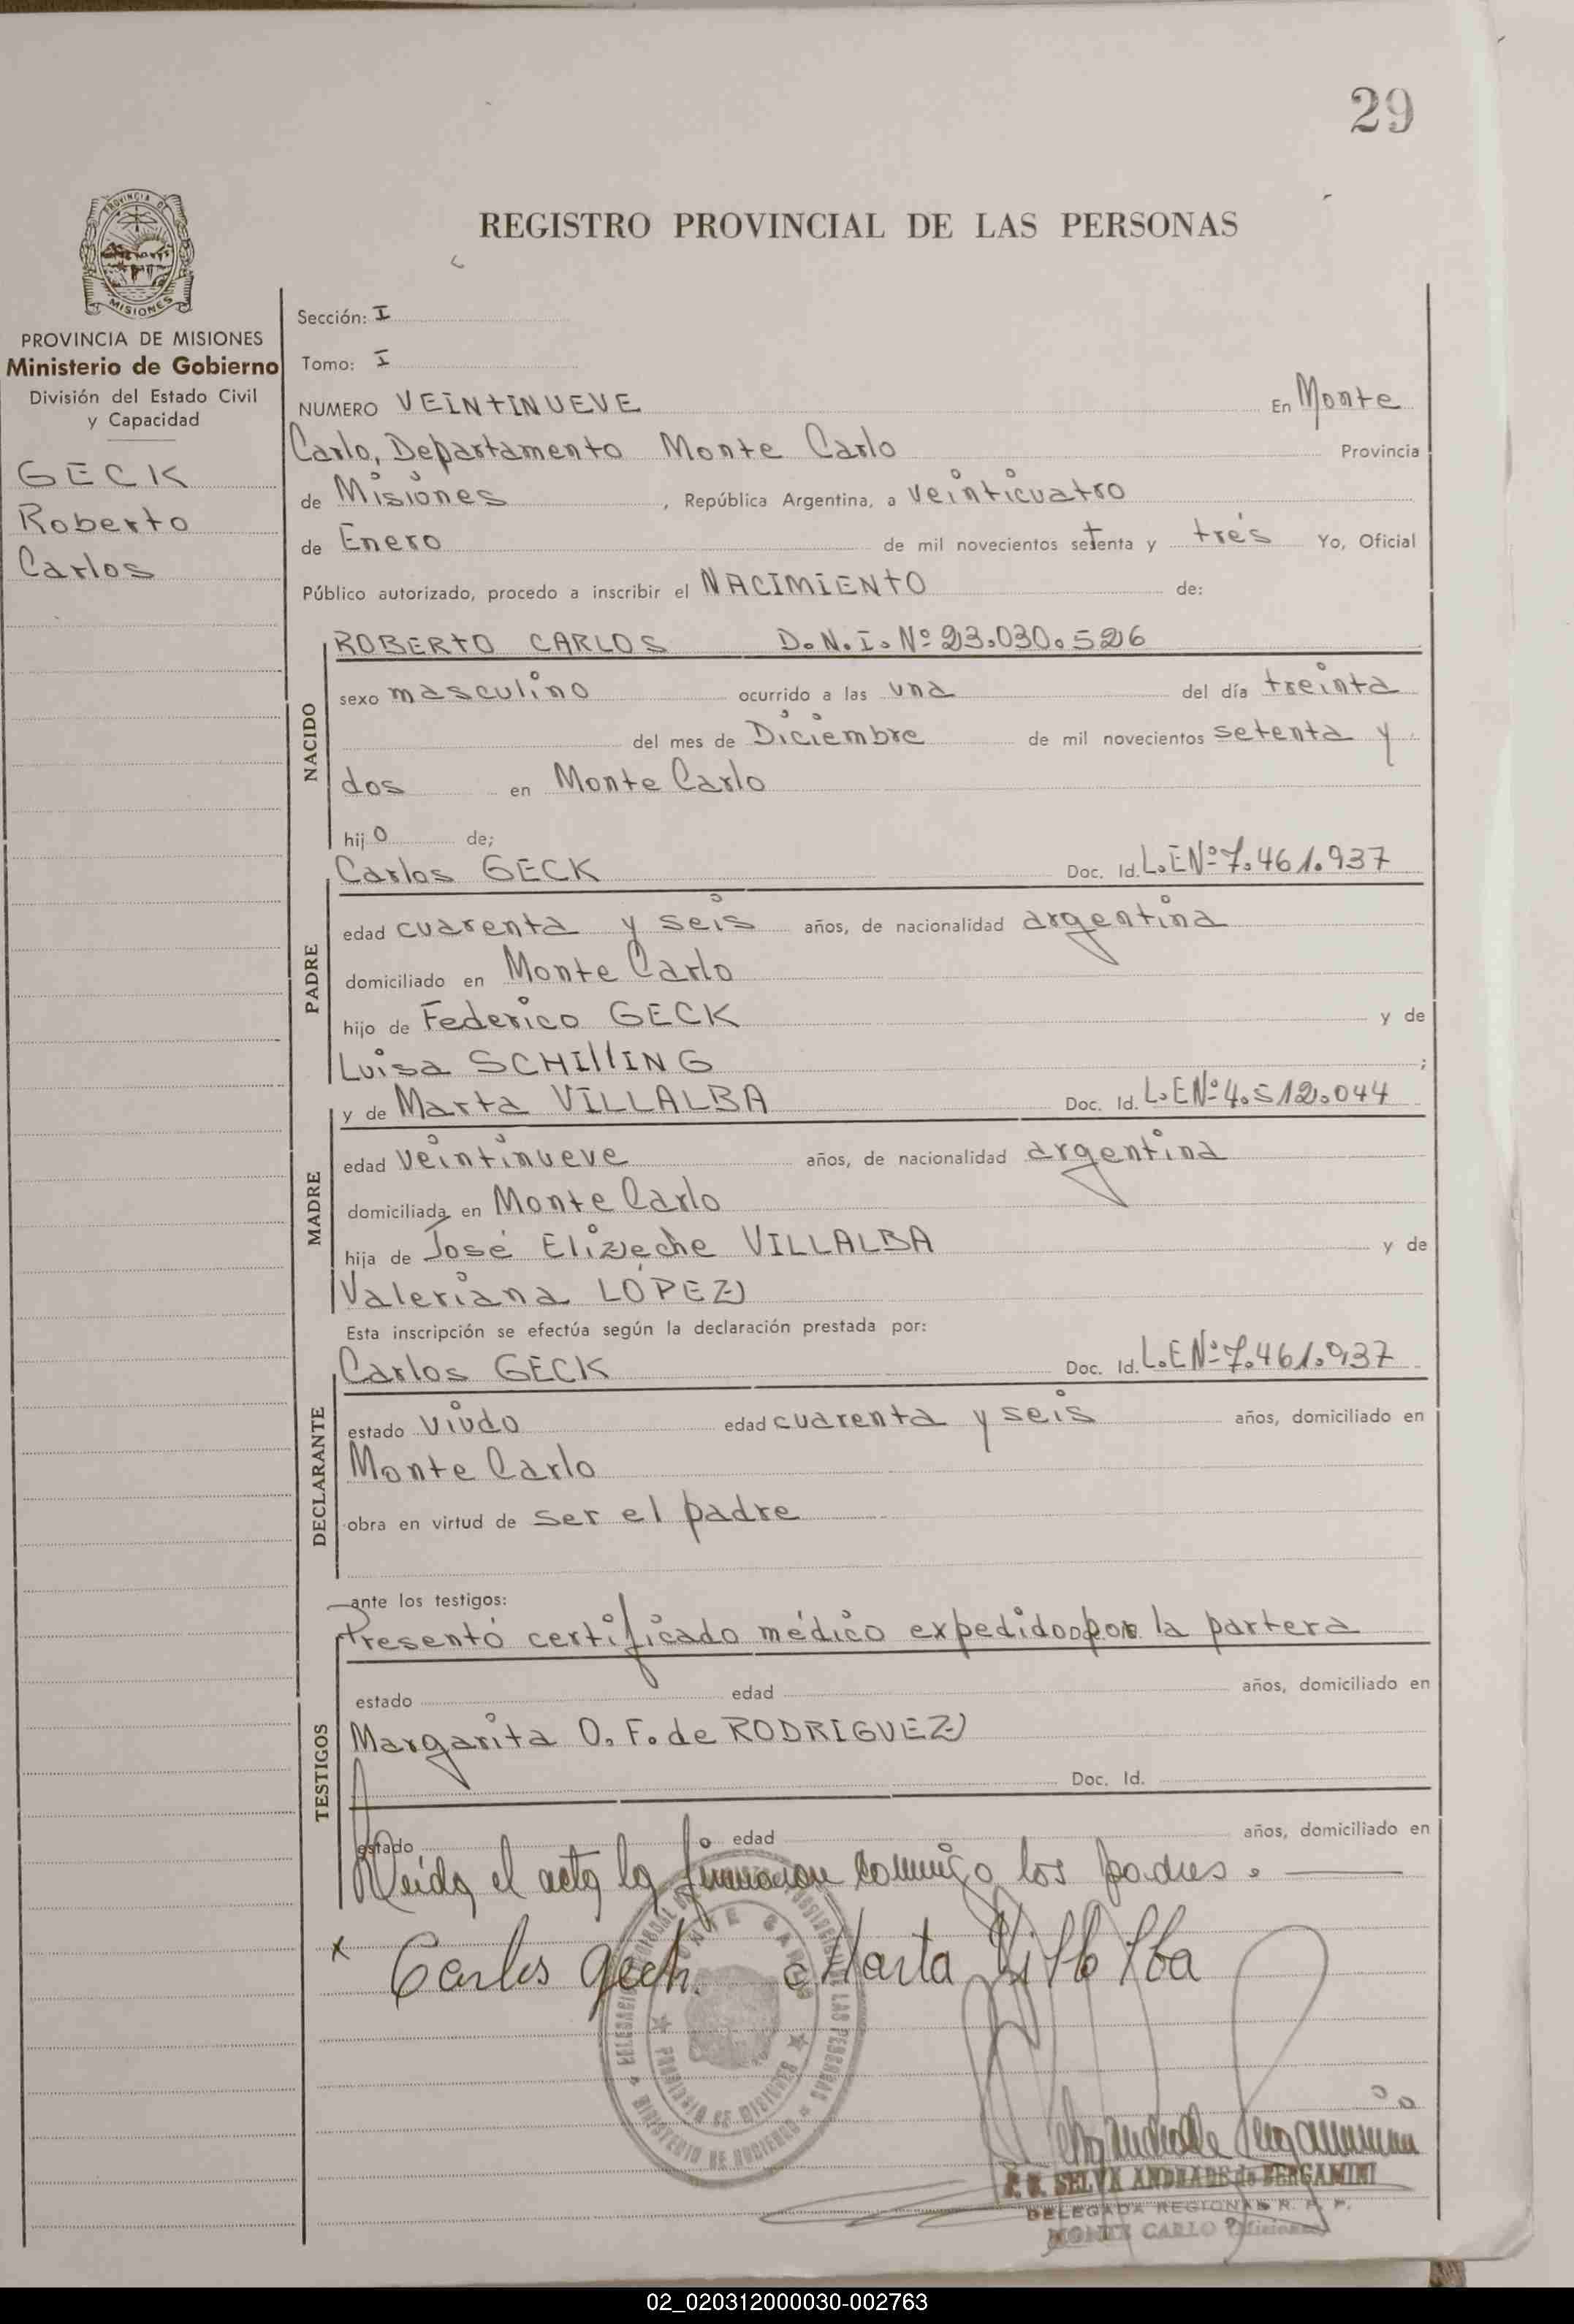 29
PROVINCIA DE
MISIONES
REGISTRO PROVINCIAL DE LAS PERSONAS
PROVINCIA DE MISIONES
Ministerio de Gobierno
División del Estado Civil
y Capacidad
GECK
Roberto
Carlos
Sección: I
Tomo: I
NUMERO VEINTINUEVE En Monte
Carlo, Departamento Monte Carlo Provincia
de Misiones, República Argentina, a veinticuatro
de Enero de mil novecientos setenta y tres Yo, Oficial
Público autorizado, procedo a inscribir el NACIMIENTO de:
NACIDO
ROBERTO CARLOS D.N.I. Nº 23.030.526
sexo masculino ocurrido a las una del día treinta
del mes de Diciembre de mil novecientos setenta y
dos en Monte Carlo
hijo de;
PADRE
Carlos GECK Doc. Id. L.E Nº 7.461.937
edad cuarenta y seis años, de nacionalidad argentina
domiciliado en Monte Carlo
hijo de Federico GECK y de
Luisa SCHIllING ;
MADRE
y de Marta VILLALBA Doc. Id. L.E Nº 4.512.044
edad veintinueve años, de nacionalidad argentina
domiciliada en Monte Carlo
hija de José Elizeche VILLALBA y de
Valeriana LÓPEZ
Esta inscripción se efectúa según la declaración prestada por:
DECLARANTE
Carlos GECK Doc. Id. L.E Nº 7.461.937
estado viudo edad cuarenta y seis años, domiciliado en
Monte Carlo
obra en virtud de ser el padre
ante los testigos:
TESTIGOS
Presentó certificado médico expedido por la partera
estado edad años, domiciliado en
Margarita O. F. de RODRIGUEZ
Doc. Id.
estado edad años, domiciliado en
Leída el acta la firmaron conmigo los padres.
x Carlos Geck. Marta Villalba
MONTE CARLO
PROVINCIA DE MISIONES
MINISTERIO DE GOBIERNO
LAS PERSONAS
SELVA ANDRADE de BERGAMINI
DELEGADA REGIONAL R. P. P.
MONTE CARLO Misiones
02_020312000030-002763